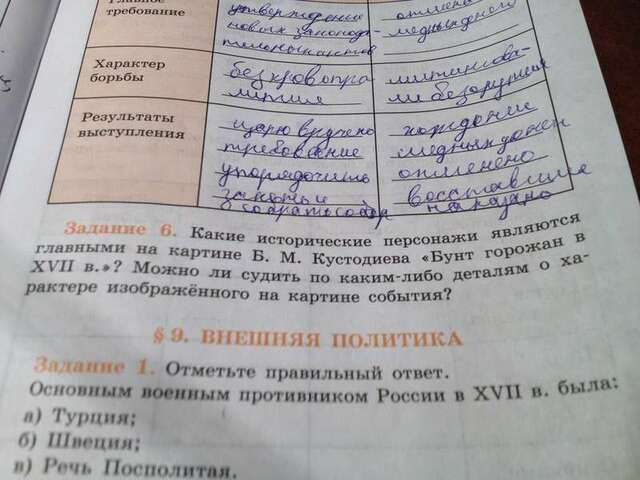 требование
утверждение
новых законода-
тельных актов
отмена
медных денег
Характер
борьбы
без кровопро
лития
митингова-
ли безоружия
Результаты
выступления
царю вручено
требование
упорядочить
законы и
собрать собор
хождение
медных денег
отменено
восставшие
наказано
Задание 6. Какие исторические персонажи являются
главными на картине Б. М. Кустодиева «Бунт горожан в
XVII в.»? Можно ли судить по каким-либо деталям о ха-
рактере изображённого на картине события?
§ 9. ВНЕШНЯЯ ПОЛИТИКА
Задание 1. Отметьте правильный ответ.
Основным военным противником России в XVII в. была:
а) Турция;
б) Швеция;
в) Речь Посполитая.